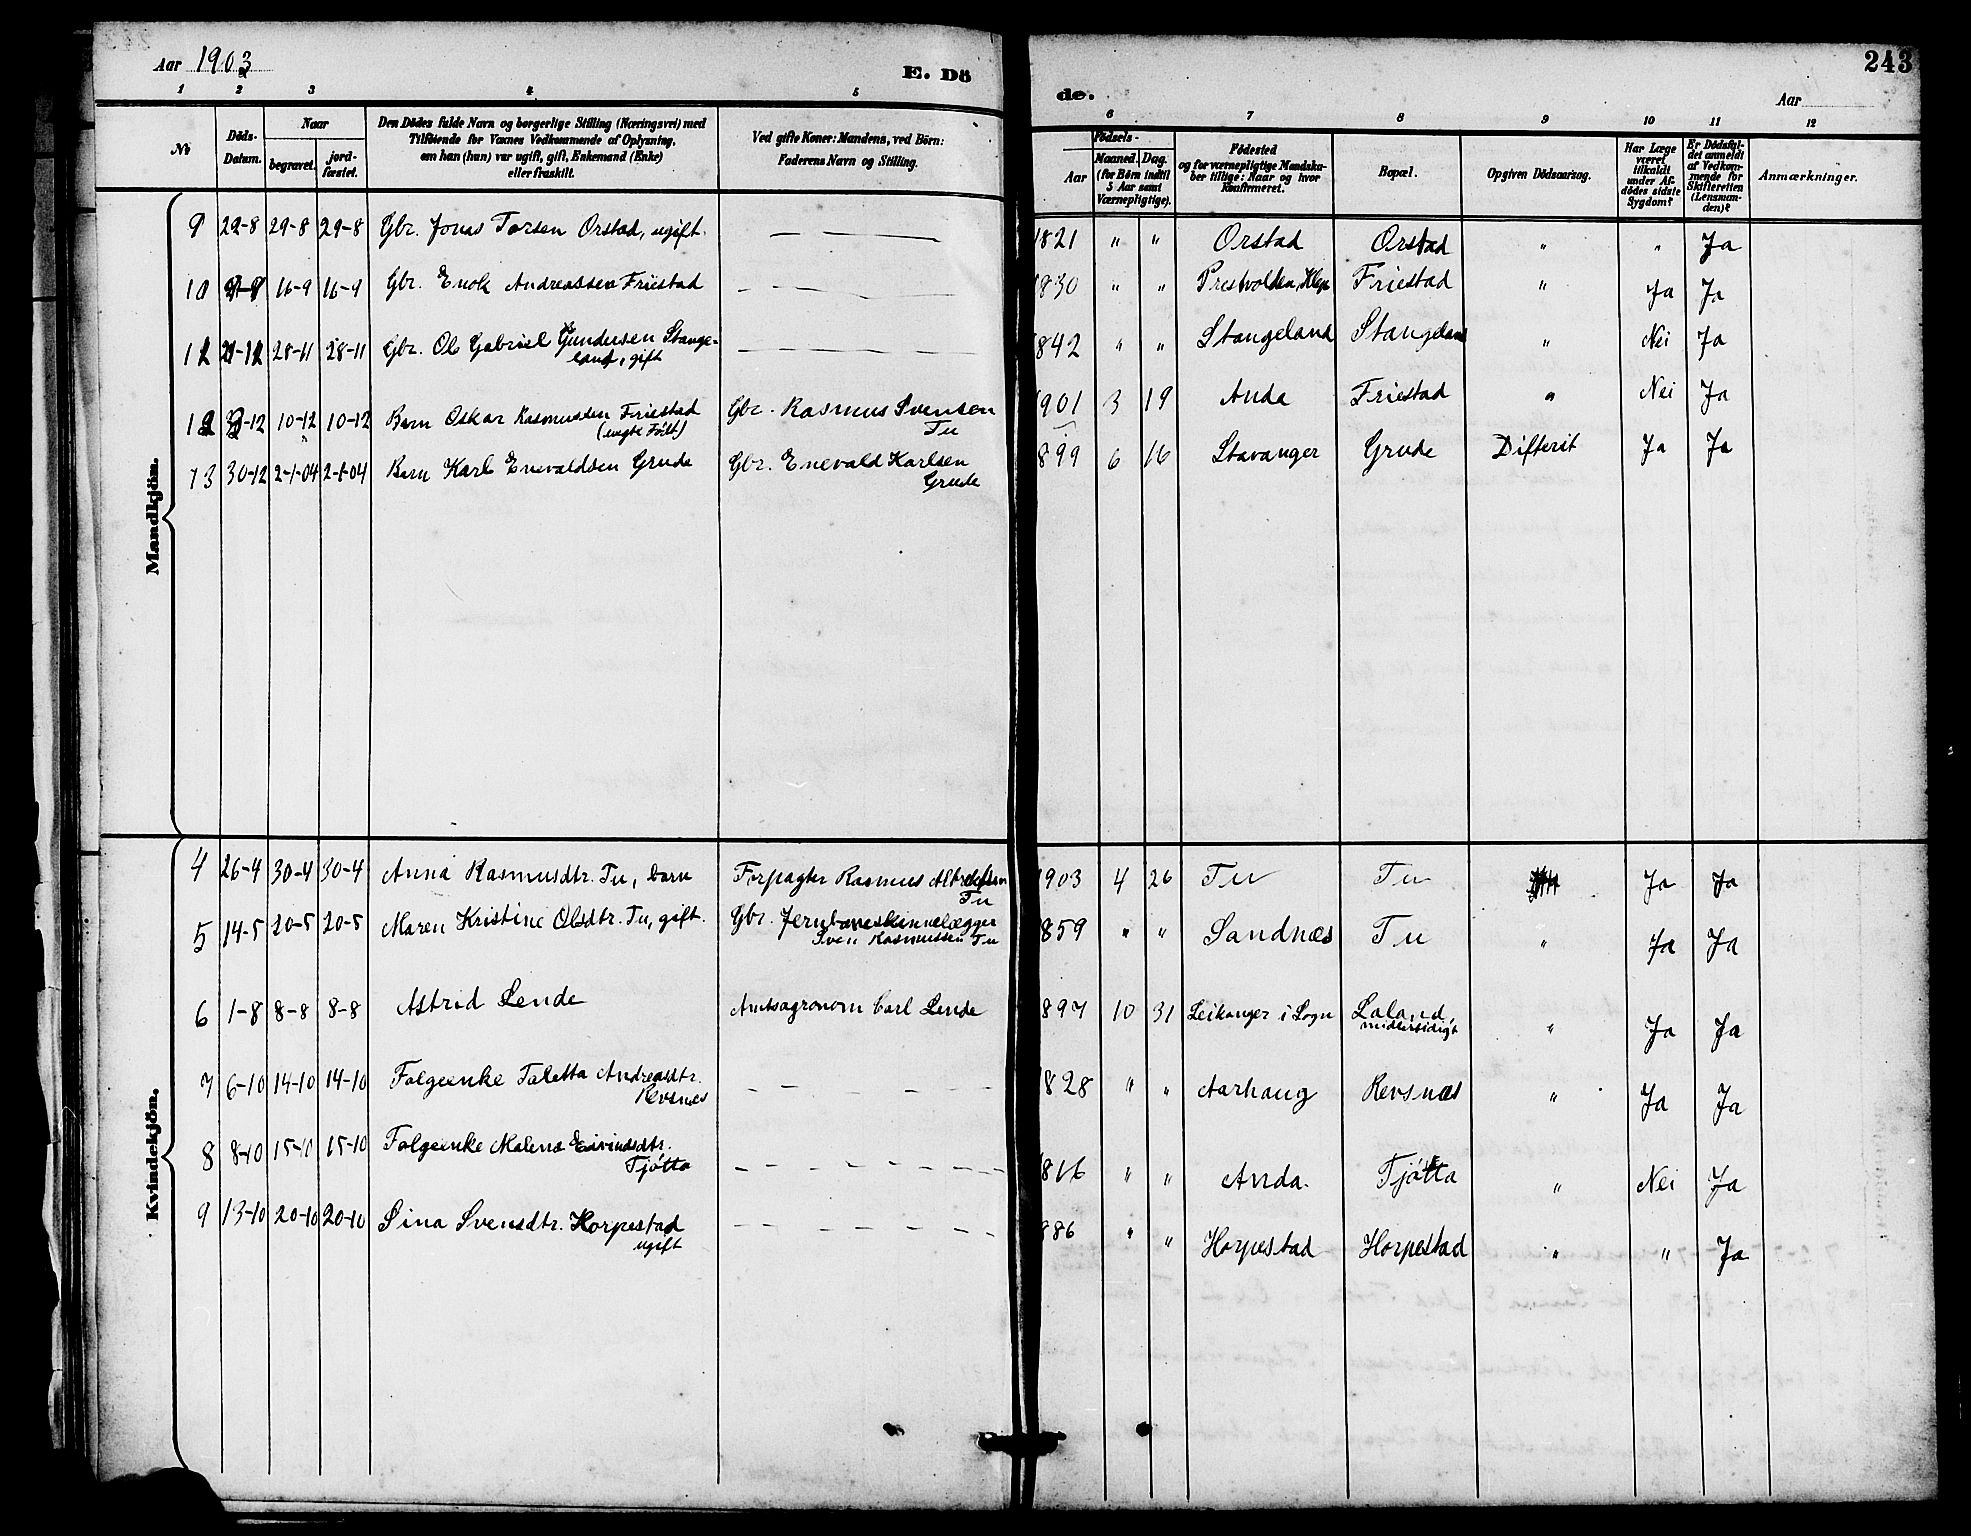 Aar 1903
E. Dö
de.
243
Aar
1 2 3 4 5 6 7 8 9 10 11 12
No
Döds-Datum.
Naar
begravet. jord-fæstet.
Den Dödes fulde Navn og borgerlige Stilling (Næringsvei) med
Tilföiende for Voxnes Vedkommende af Oplysning,
om han (hun) var ugift, gift, Enkemand (Enke)
eller fraskilt.
Ved gifte Koner: Mandens, ved Börn:
Faderens Navn og Stilling.
Födsels-
Aar
Maaned. Dag.
(for Börn indtil
5 Aar samt
Værnepligtige).
Födested
og for værnepligtige Mandska-
ber tillige: Naar og hvor
Konfirmeret.
Bopæl.
Opgiven Dödsaarsag.
Har Læge
været
tilkaldt
under Af-
dödes sidste
Sygdom?
Er Dödsfal-
det anmeldt
af Vedkom-
mende for
Skifteretten
(Lensman-
den)?
Anmærkninger.
Mandkjön.
9 22-8 29-8 29-8 Gbr. Jonas Torsen Orstad, ugift. — — — 1821 " " Orstad Orstad " " Ja
10 9-9 16-9 16-9 Gbr. Enok Andreassen Friestad — — — 1830 " " Prestvolden, Klep Friestad " Ja Ja
28-11 28-11 Gbr. Ol Gabriel Gundersen Stange-
land, gift — — — 1842 " " Stangeland Stangeland " Nei Ja
12 3-12 10-12 10-12 Barn Oskar Rasmussen Friestad
(uegte Födt) Gbr. Rasmus Svensen
Tu 1901 3 19 Anda Friestad " Nei Ja
13 30-12 2-1-04 2-1-04 Barn Karl Enevaldsen Grude Gbr. Enevald Karlsen
Grude 1899 6 16 Stavanger Grude Difterit Ja Ja
Kvindekjön.
4 26-4 30-4 30-4 Anna Rasmusdtr. Tu, barn Forpagter Rasmus
Tu 1903 4 26 Tu Tu Ja Ja
5 14-5 20-5 20-5 Maren Kristine Olsdtr. Tu, gift. Gbr. Jernbaneskinnelægger
Sven Rasmussen Tu 1859 " " Sandnæs Tu " Ja Ja
6 1-8 8-8 8-8 Astrid Lende Amtsagronom Carl Lende 1897 10 31 Leikanger i Sogn Laland,
midlertidigt " Ja Ja
7 6-10 14-10 14-10 Folgeenke Taletta Andreasdtr.
Revsnes — — — 1828 " " Aarhaug Revsnæs " Ja Ja
8 8-10 15-10 15-10 Folgeenke Malena Eivindsdtr.
Tjótta — — — 1816 " " Anda. Tjótta " Nei Ja
9 13-10 20-10 20-10 Sina Svensdtr. Horpestad
ugift — — — 1886 " " Horpestad Horpestad " " Ja